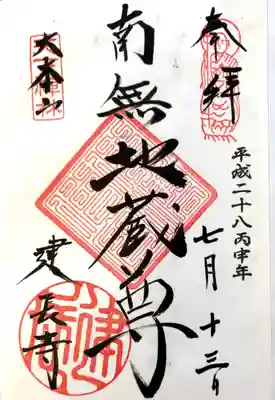 奉拝
平成二十八丙申年
七月十三日
南無地蔵尊
大本山
建長寺